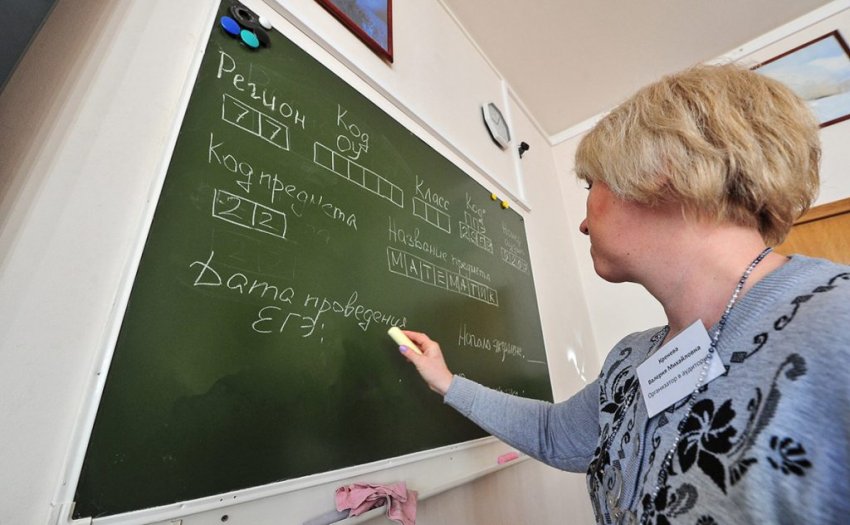 Регион
77
Код
ОУ
Класс
Код
ППЭ
Код предмета
22
Название предмета
МАТЕМАТИК
Дата проведения
ЕГЭ:
Начало экзамена:
Валерия Михайловна
Организатор в аудитории